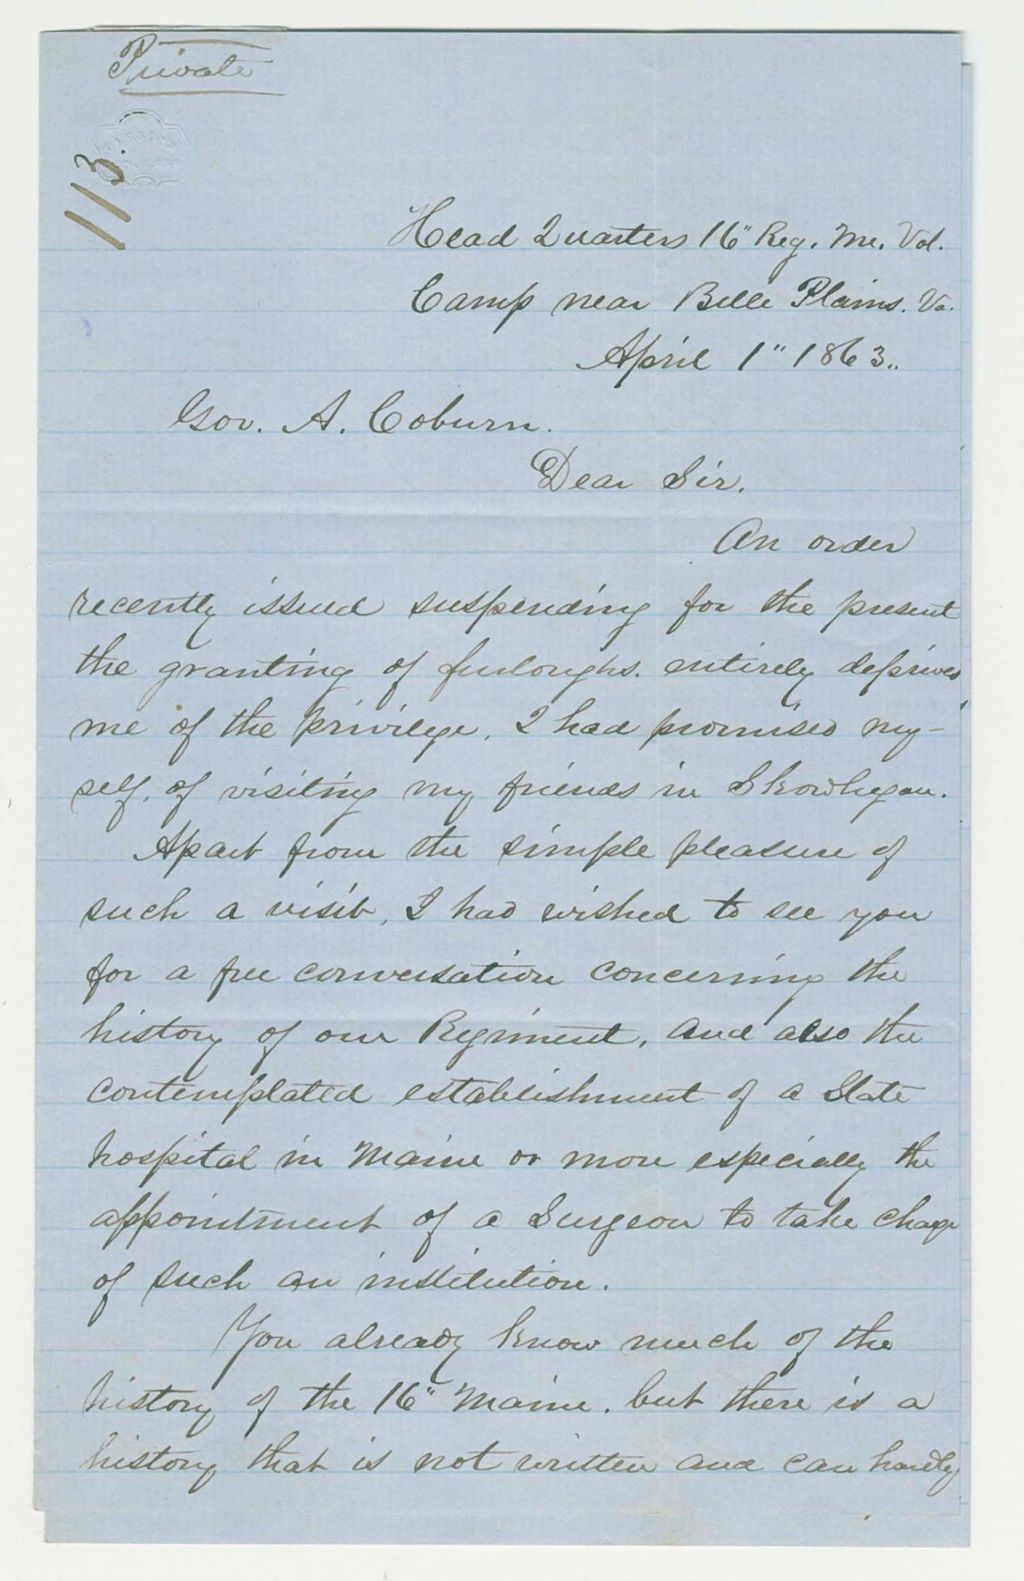 Private
113.
Head Quarters 16" Reg. Me. Vol.
Camp near Belle Plains. Va.
April 1" 1863..
Gov. A. Coburn.
Dear Sir.
An order
recently issued suspending for the present
the granting of furloughs. entirely deprives
me of the privilege, I had promised my-
self, of visiting my friends in Skowhegan.
Apart from the simple pleasure of
such a visit, I had wished to see you
for a free conversation concerning the
history of our Regiment, and also the
contemplated establishment of a State
hospital in Maine or more especially the
appointment of a Surgeon to take charge
of such an institution.
You already know much of the
history of the 16" Maine. but there is a
history that is not written and can hardly